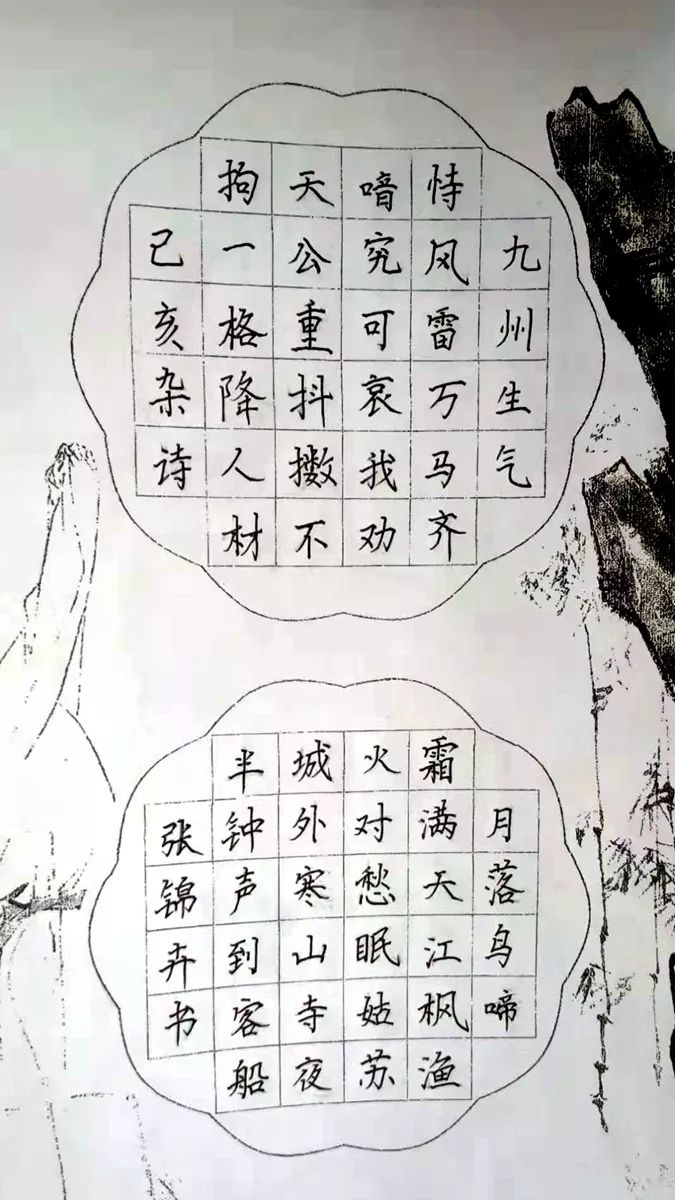 九州生气
恃风雷万马齐
喑究可哀我劝
天公重抖擞不
拘一格降人材
己亥杂诗
月落乌啼
霜满天江枫渔
火对愁眠姑苏
城外寒山寺夜
半钟声到客船
张锦卉书